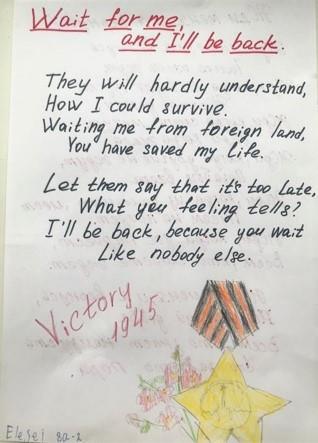 Wait for me,
and I'll be back.
They will hardly understand,
How I could survive.
Waiting me from foreign land,
You have saved my life.
Let them say that it's too late,
What you feeling tells?
I'll be back, because you wait
Like nobody else.
Victory
1945
8a-2